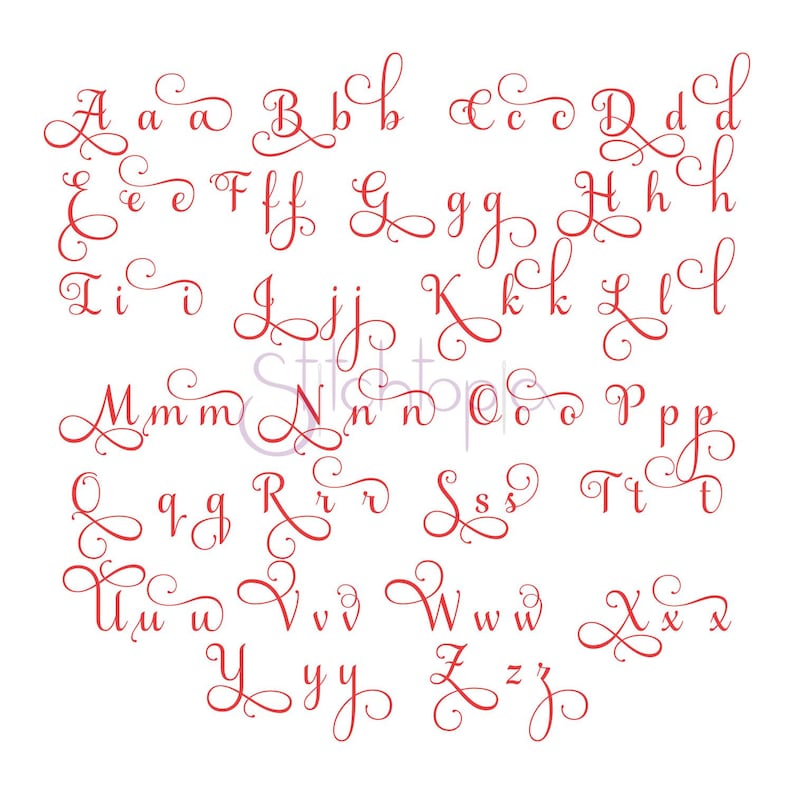 A a a B b b C c c D d d
E e e F f f G g g H h h
I i i J j j K k k L l l
Stitchtopia
M m m N n n O o o P p p
Q q q R r r S s s T t t
U u u V v v W w w X x x
Y y y Z z z